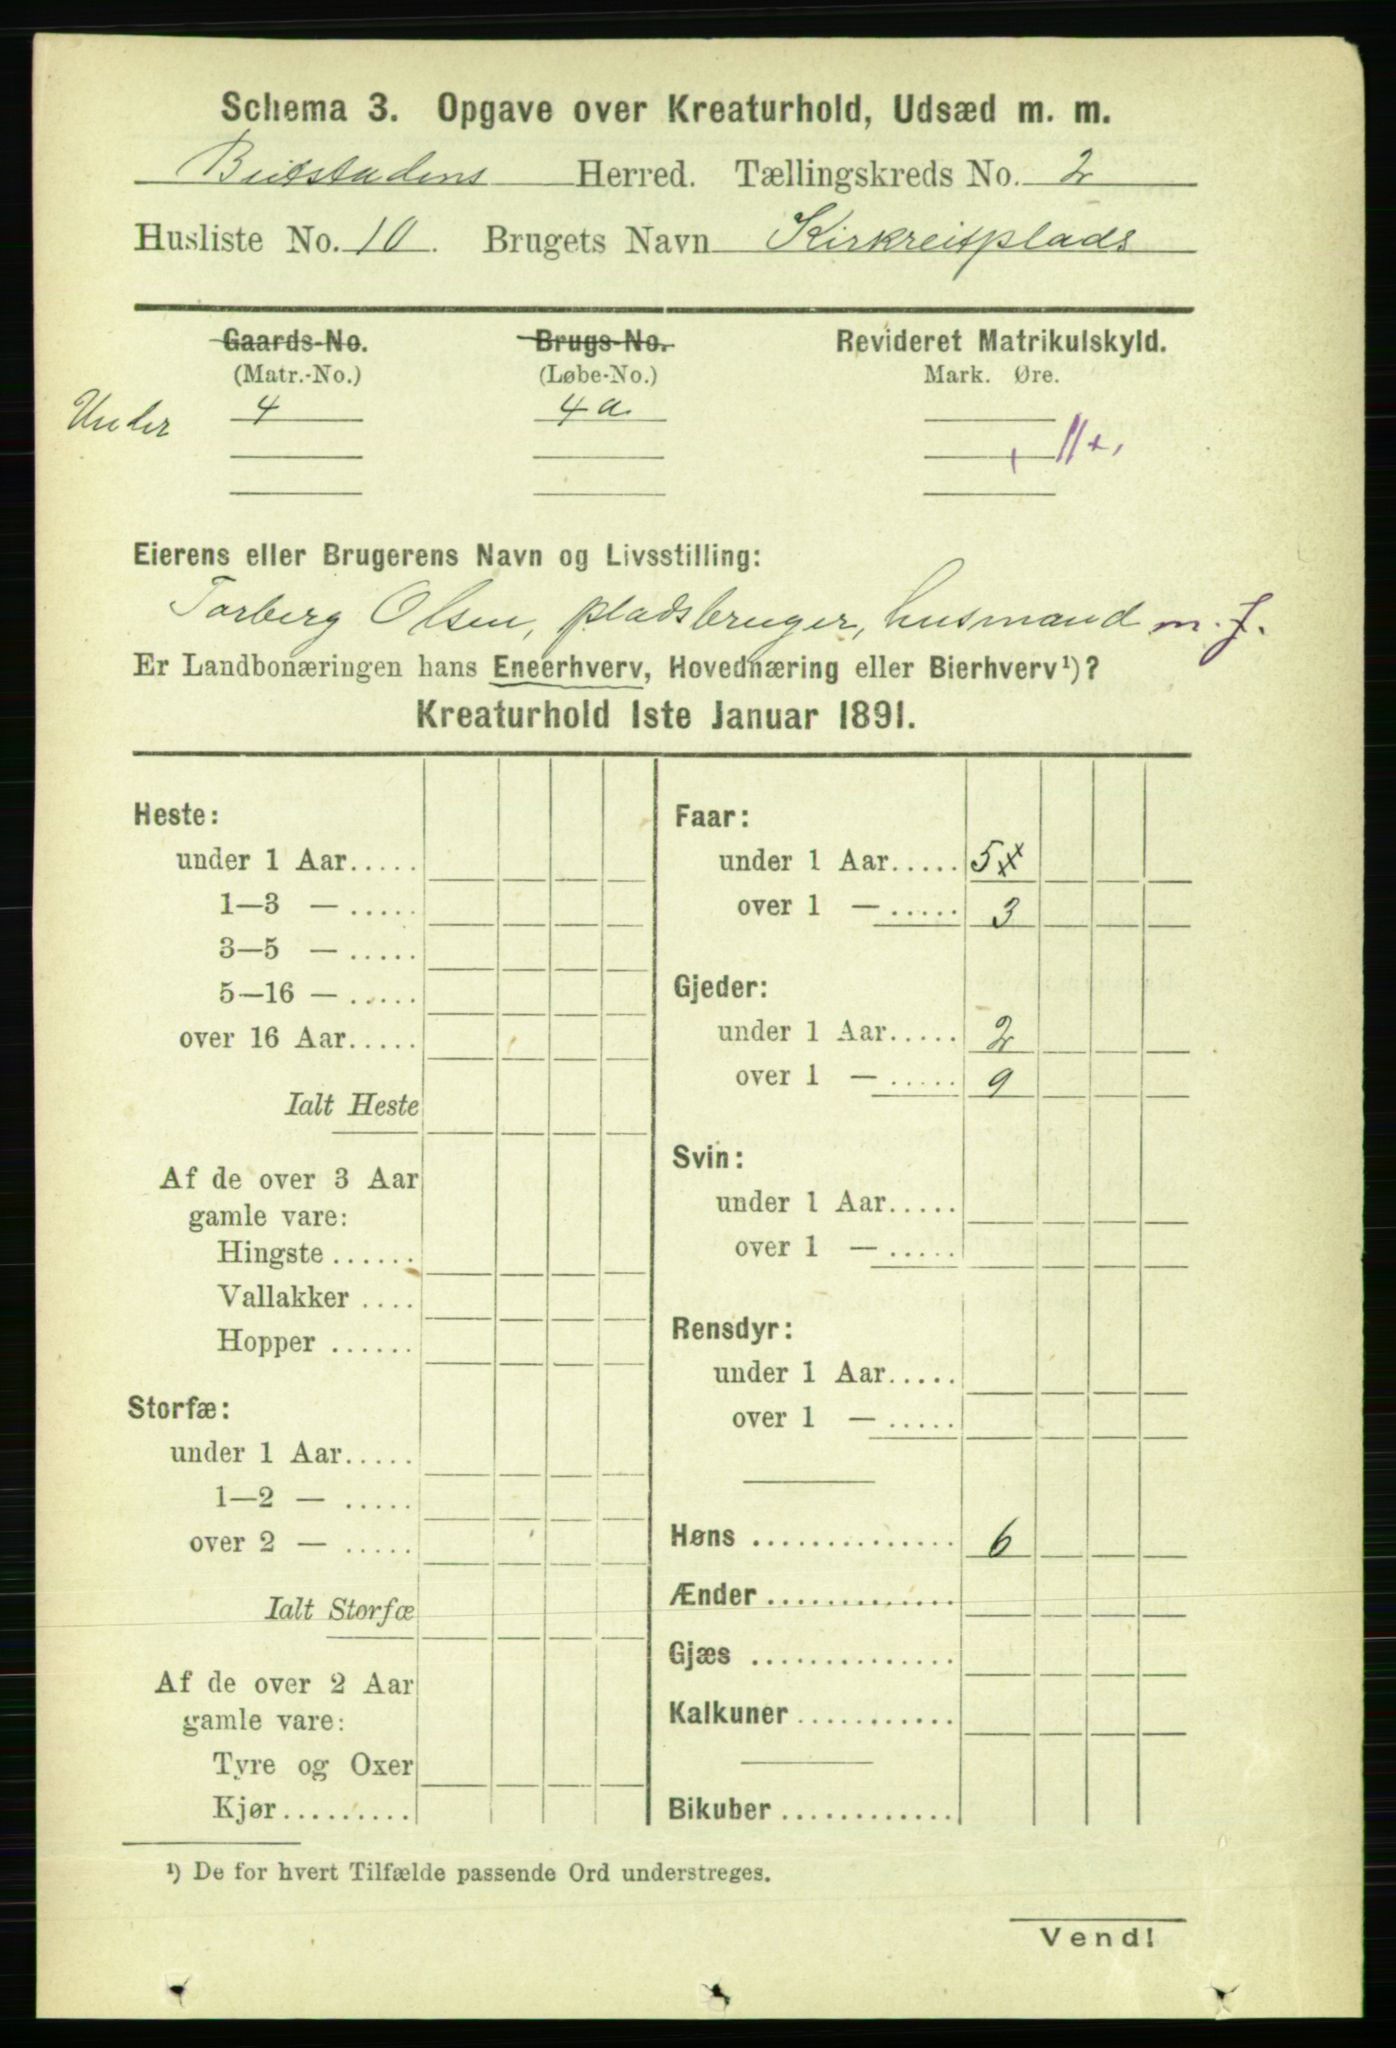 Schema 3. Opgave over Kreaturhold, Udsæd m. m.
Beitstadens Herred. Tællingskreds No. 2
Husliste No. 10. Brugets Navn Kirkreitplads
Gaards-No. Brugs-No. Revideret Matrikulskyld.
(Matr.-No.) (Løbe-No.) Mark. Øre.
Under 4 4a
Eierens eller Brugerens Navn og Livsstilling:
Torberg Olsen, pladsbruger, husmand m. j.
Er Landbonæringen hans Eneerhverv, Hovednæring eller Bierhverv¹)?
Kreaturhold 1ste Januar 1891.
Heste:
under 1 Aar.....
1—3 — .....
3—5 — .....
5—16 — .....
over 16 Aar.....
Ialt Heste
Af de over 3 Aar
gamle vare:
Hingste ......
Vallakker ....
Hopper ......
Storfæ:
under 1 Aar.....
1—2 — .....
over 2 — .....
Ialt Storfæ
Af de over 2 Aar
gamle vare:
Tyre og Oxer
Kjør.........
Faar:
under 1 Aar..... 5
over 1 — ..... 3
Gjeder:
under 1 Aar..... 2
over 1 — ..... 9
Svin:
under 1 Aar.....
over 1 — .....
Rensdyr:
under 1 Aar.....
over 1 — .....
Høns .............. 6
Ænder .............
Gjæs ..............
Kalkuner...........
Bikuber ............
¹) De for hvert Tilfælde passende Ord understreges.
Vend!